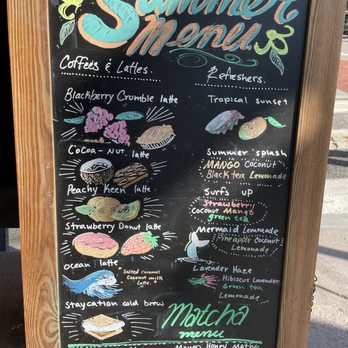 Summer
menu
Coffees & Lattes.
Blackberry Crumble latte
Cocoa-Nut latte
Peachy Keen latte
Strawberry Donut latte
ocean latte
Salted Caramel
Coconut milk
Latte.
Staycation cold brew
Refreshers.
Tropical sunset
Summer splash
MANGO Coconut
Black tea Lemonade
Surfs up
Strawberry
Coconut Mango
green tea
Mermaid Lemonade
Pineapple Coconut
Lemonade
Lavender Haze
Hibiscus Lavender
Green tea
Lemonade
Matcha
menu
Honey Matcha